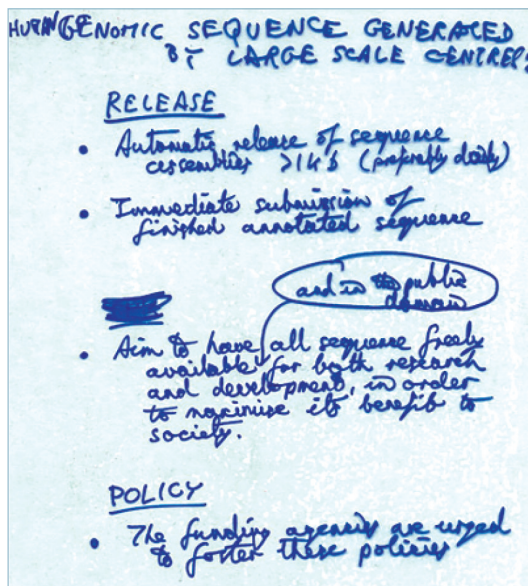 HUMAN GENOMIC SEQUENCE GENERATED
BY LARGE SCALE CENTRES
RELEASE
• Automatic release of sequence
assemblies >1Kb (preferably daily)
• Immediate submission of
finished annotated sequence
and in the public
domain
• Aim to have all sequence freely
available for both research
and development, in order
to maximise its benefit to
society.
POLICY
• The funding agencies are urged
to foster these policies